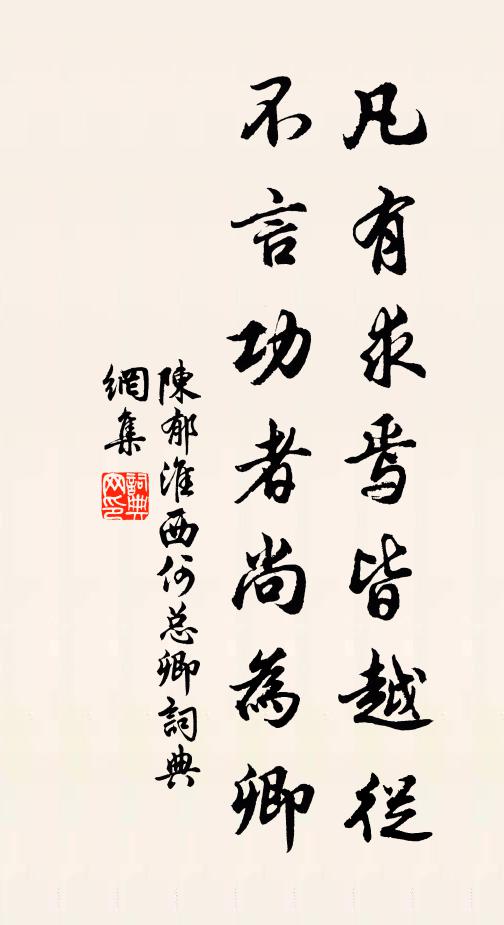 凡有求焉皆越從
不言功者尚為卿
陳郁淮西何总卿詞典
網集
詞典网印